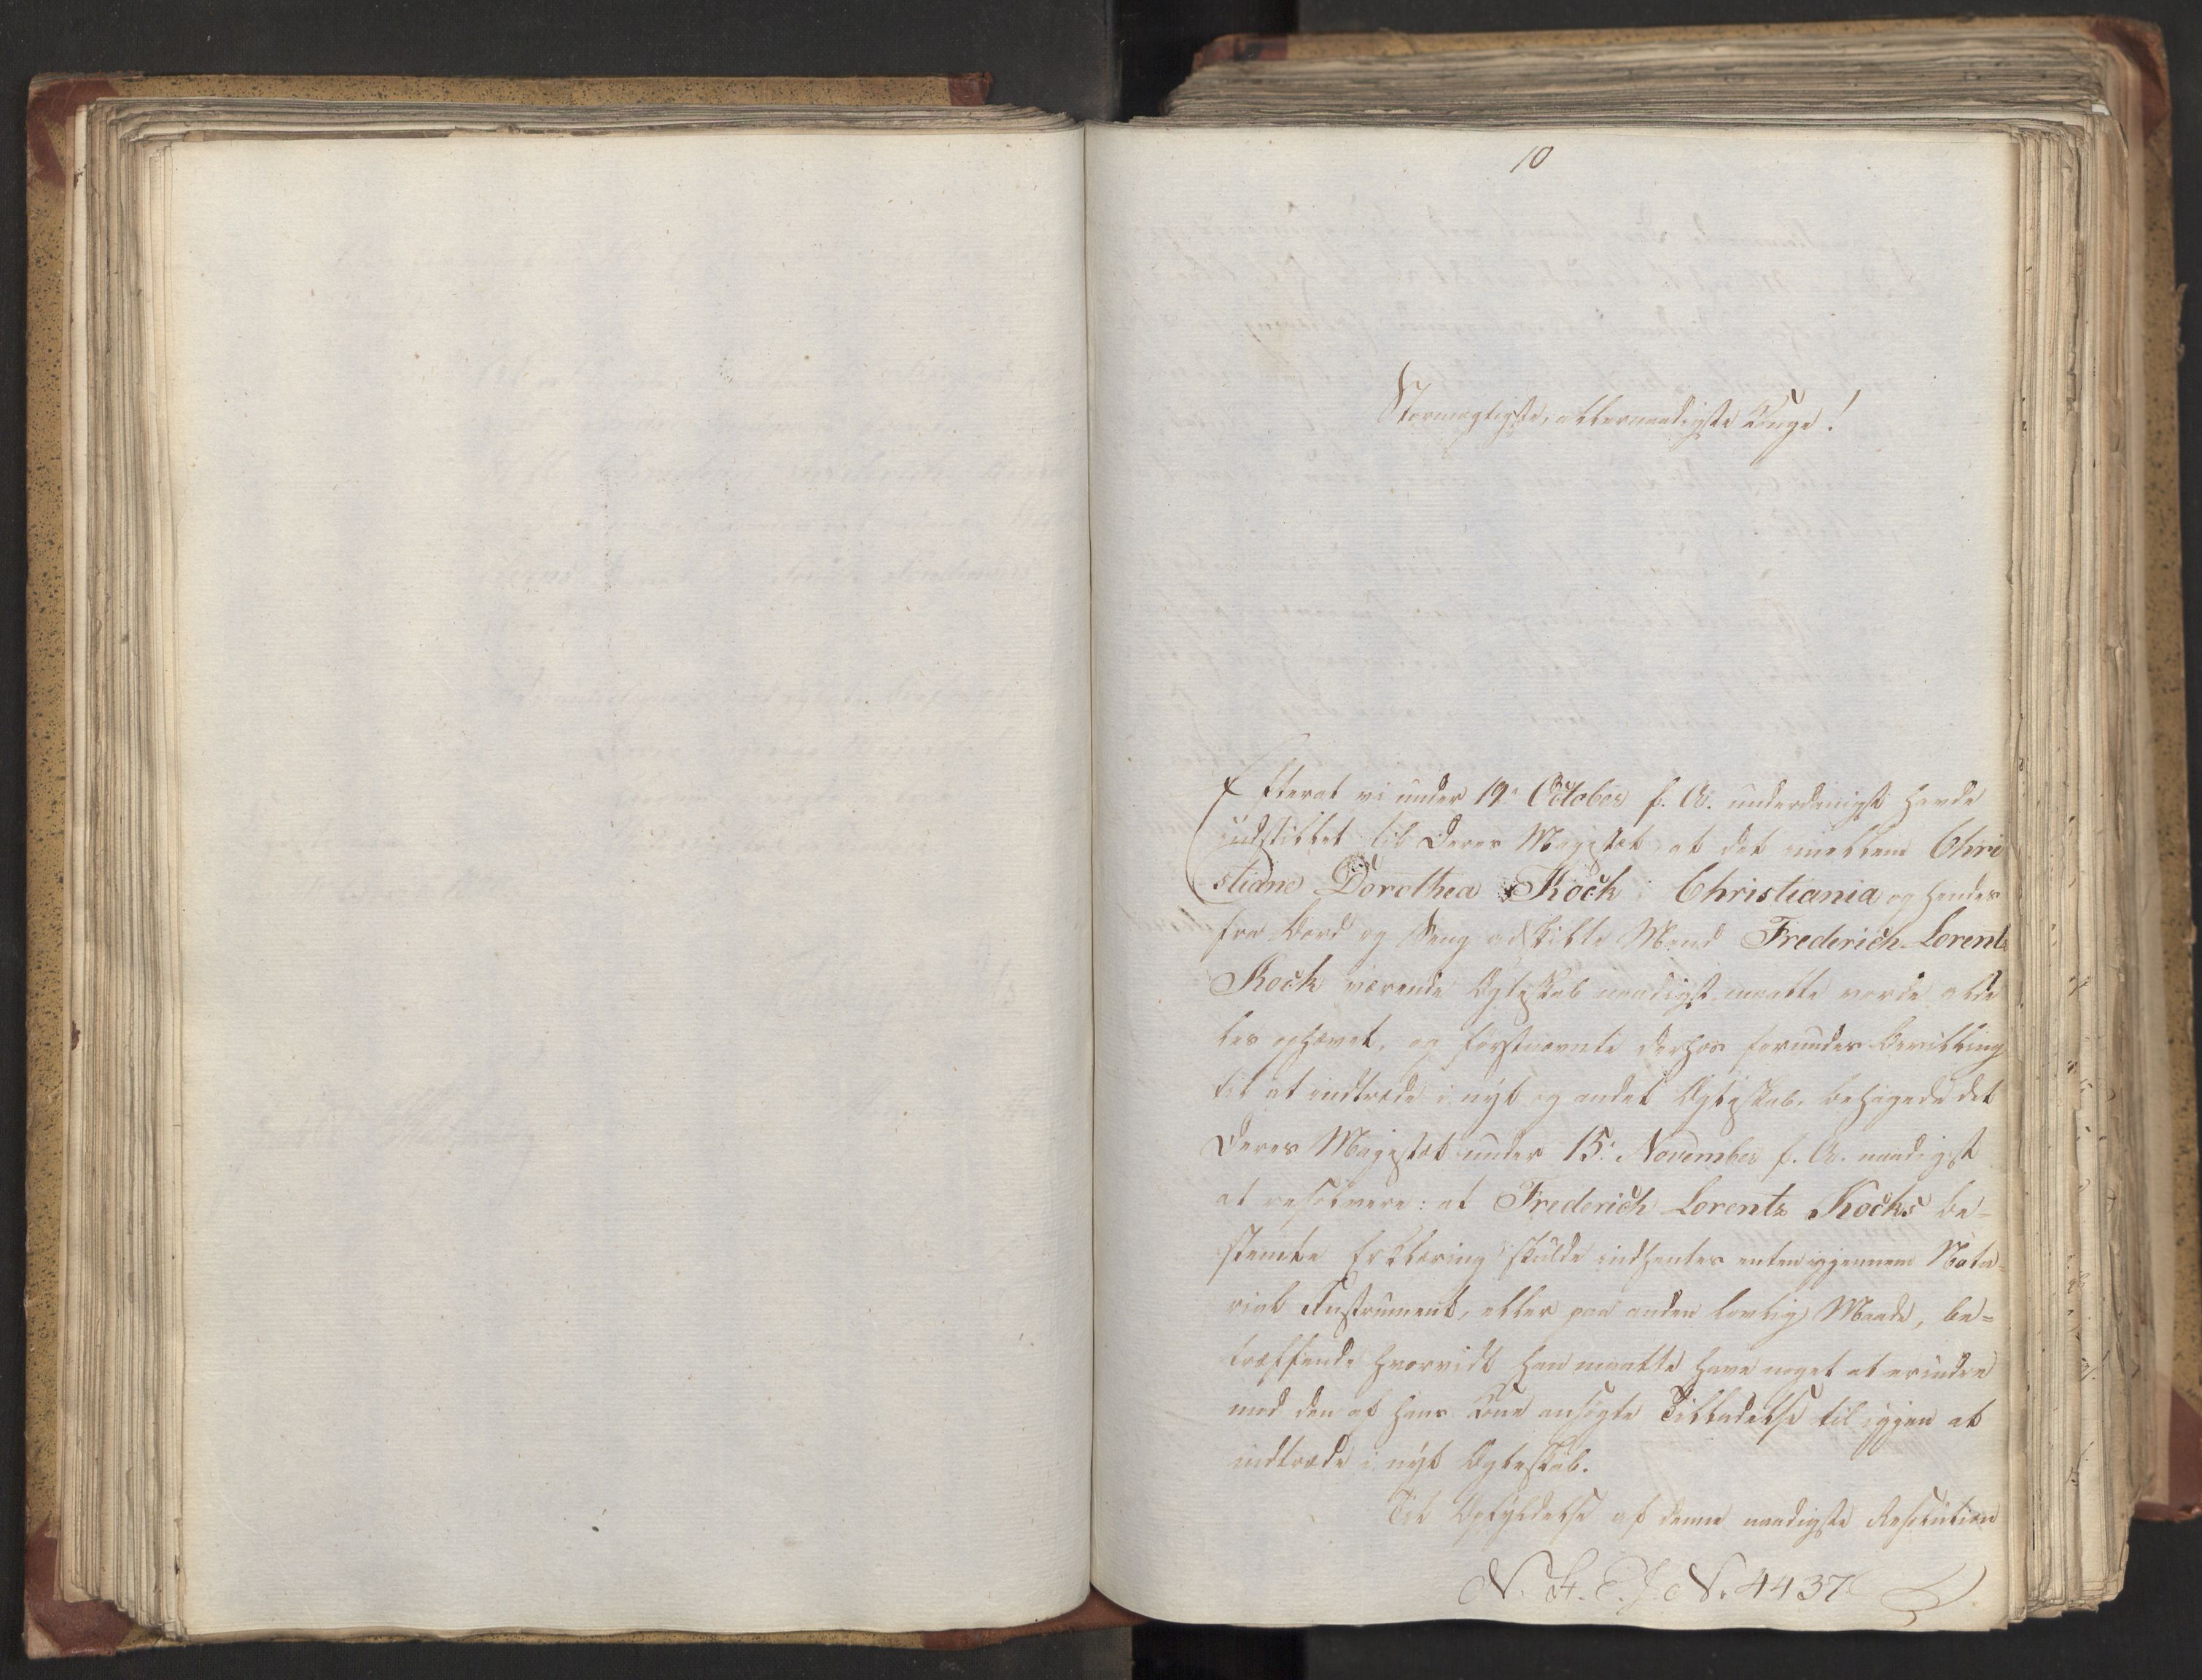 10
Stormægtigste, allernaadigste Konge!
Efterat vi under 19. October f. A. underdanigst havde
indstillet til Deres Majestæt, at det imellem Chri
stiane Dorothea Kock i Christiania og hendes
fra Bord og Seng adskilte Mand Frederich Lorentz
Kock værende Ægteskab naadigst maatte vorde alde
les ophævet, og førstnævnte derhos forundes Bevilling
til at indtræde i nyt og andet Ægteskab, behagede det
Deres Majestæt under 15. November f. A. naadigst
at resolvere: at Frederich Lorentz Kocks be-
stemte Erklæring skulde indhentes enten igjennem Nota-
rial Instrument, eller paa anden lovlig Maade, be=
træffende hvorvidt han maatte have noget at erindre
mod den af hans Kone ansøgte Tilladelse til igjen at
indtræde i nyt Ægteskab.
Til Opfyldelse af denne naadigste Resolution
J. No. 4437